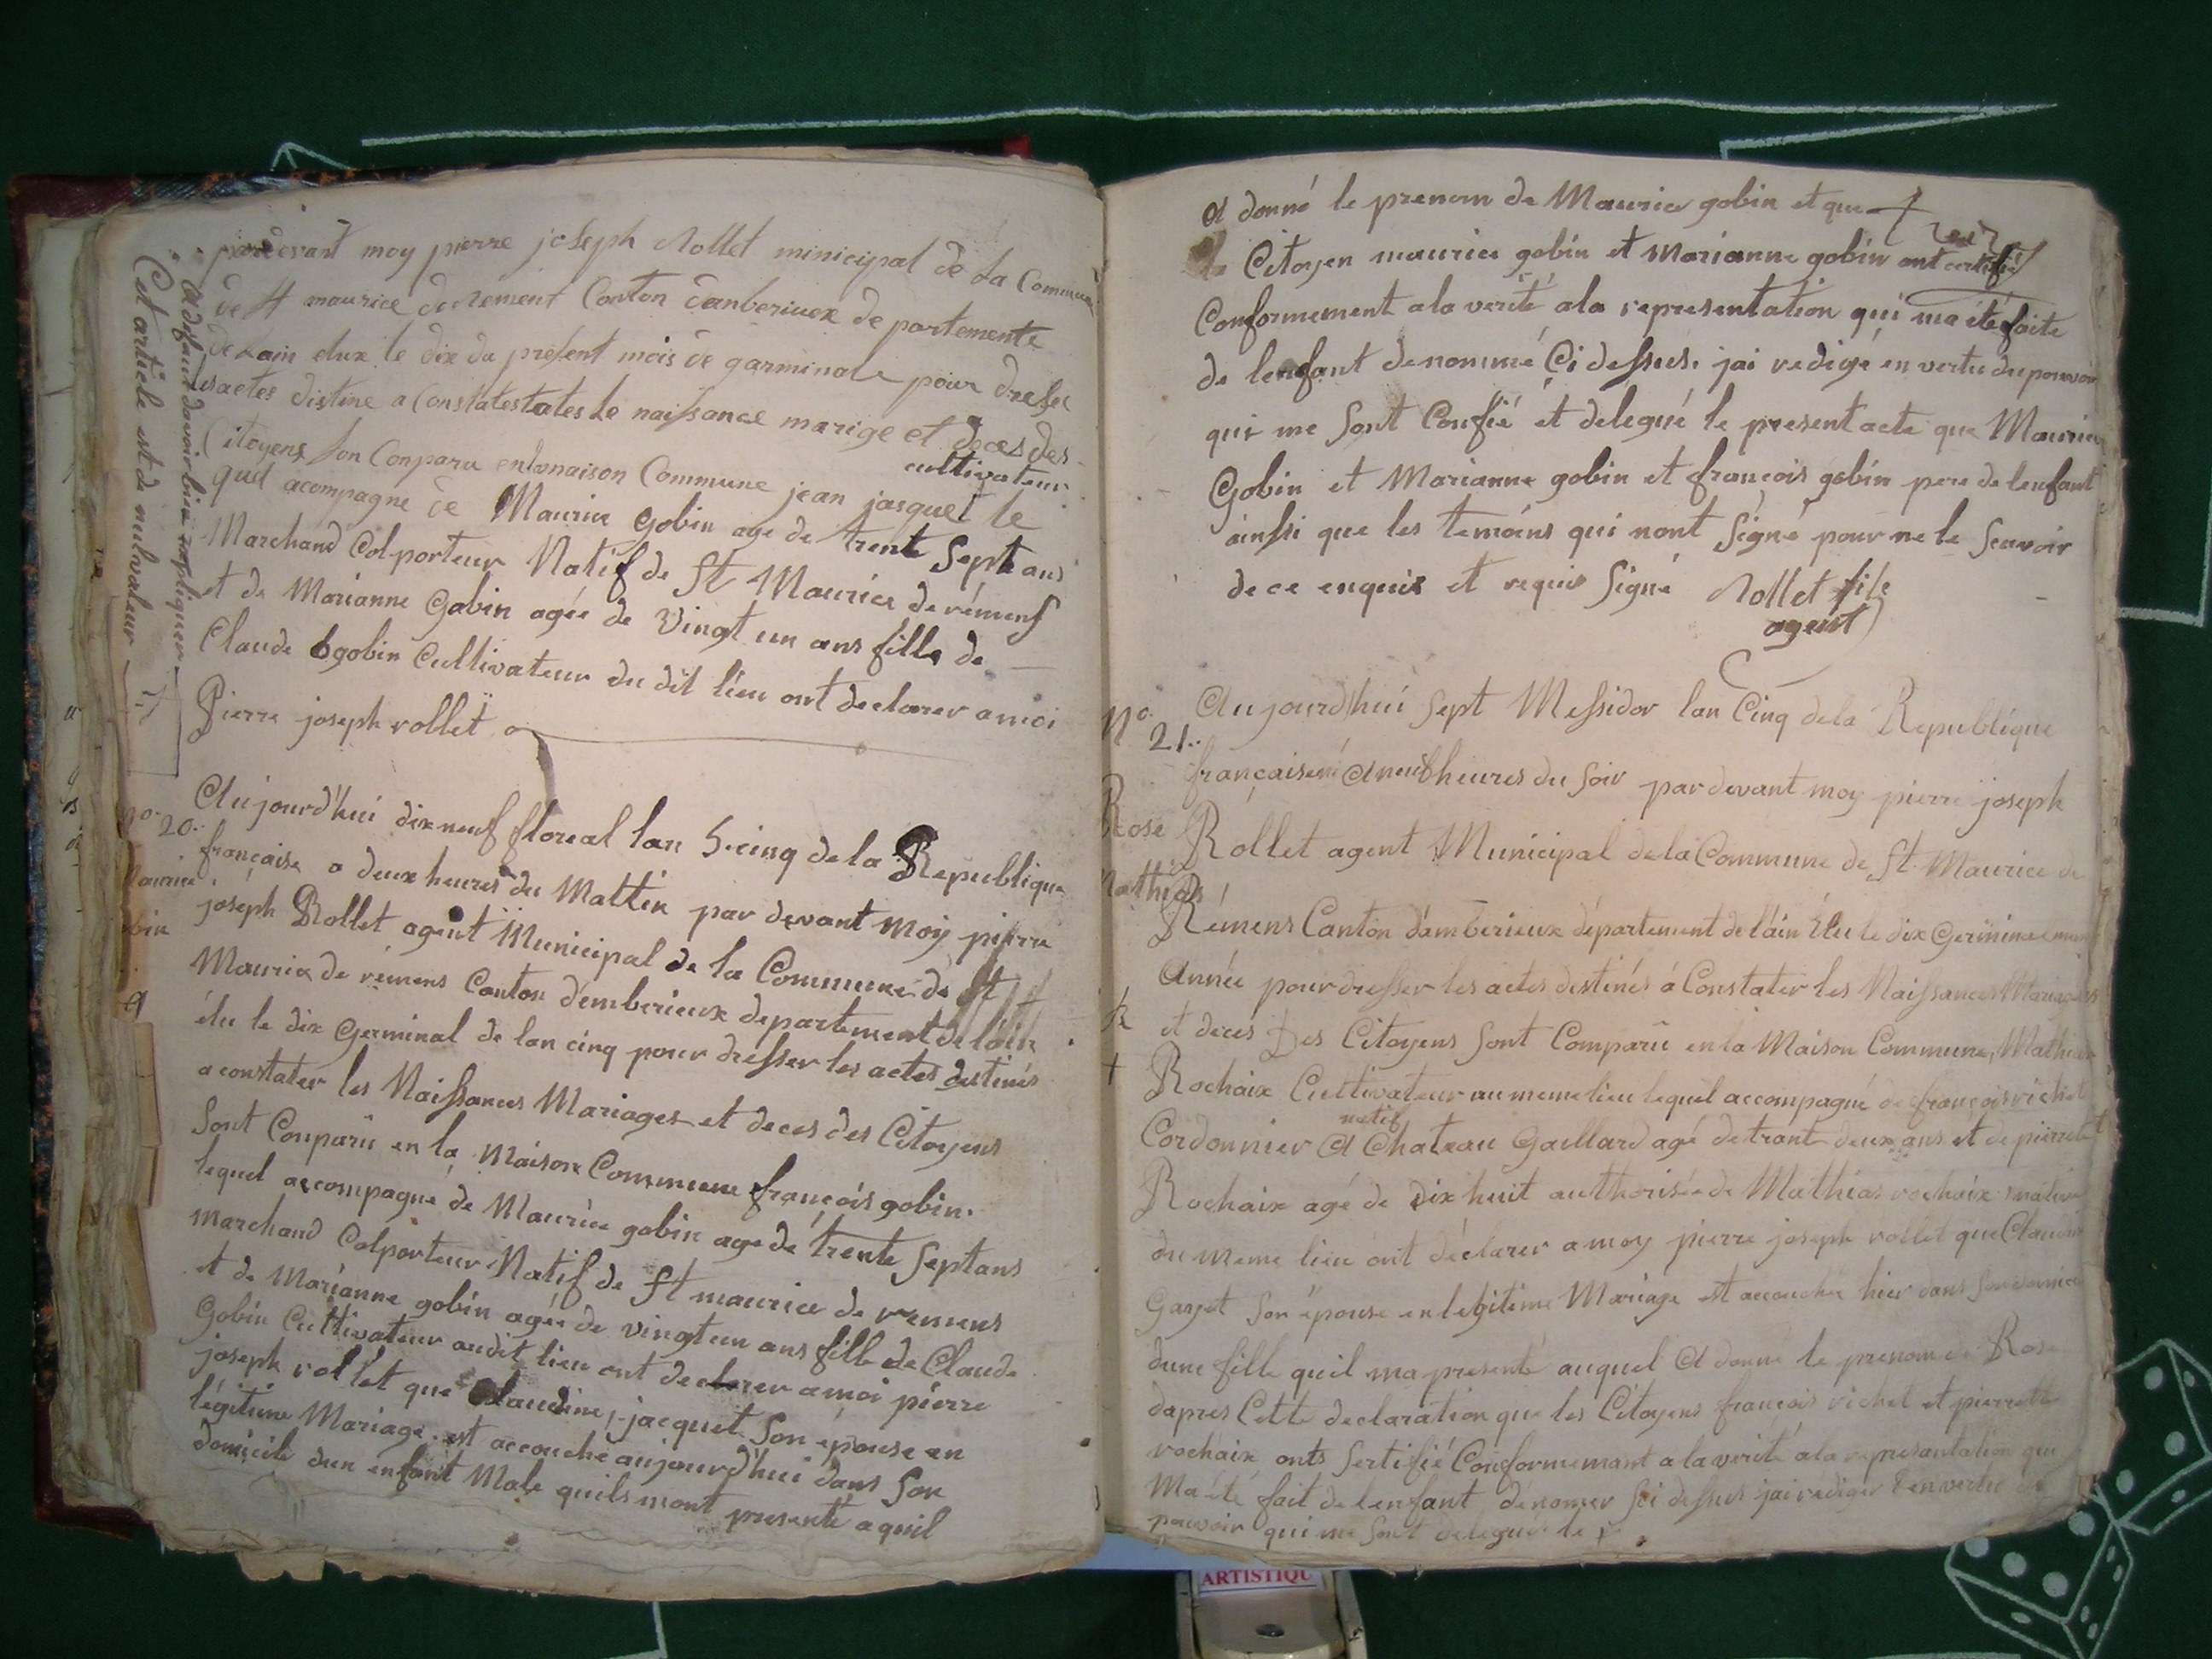 pardevant moy pierre joseph Rollet minicipal de La Commune
de st maurice deremient Conton danberiuex de partemente
de Lain elux le dix du présent mois de garminale pour dreser
lesactes distine a Constatestates le naissance marige et deces des
Citoyens son Conparu enlamaison Commune jean jasquet le
cultivateur
quel acompagne de Maurice Gobin age de trente Sept ans
Marchand Colporteur Natif de St Maurice de rémens
et de Marianne Gobin agée de Vingt un ans fille de
Claude gobin Cultivateur du dit lieu ont declarer a moi
Pierre joseph rollet
Cet article est de nulvaleur
A défaut davoir bien expliquer
no. 20.
Maurice
bin
Aujourd'hui dix neuf floreal lan 5. cinq de la Republique
française a deux heures du Mattin par devant Moy pierre
joseph Rollet agent Municipal de la Commune de St
Maurice de rémens Canton d'emberieux departement de lain
élu le dix Germinal de lan cinq pour dresser les actes destinés
a constater les Naissances Mariages et deces des Citoyens
Sont Conparû en la Maison Commune françois gobin.
lequel accompagné de Maurice gobin age de trente Septans
Marchand Colporteur Natif de St maurice de remens
et de Marianne gobin agée de vingtun ans fille de Claude
Gobin Cultivateur audit lieu ont declarer amoi pierre
joseph rollet que Claudine jacquet Son épouse en
légitime Mariage est accouche aujourd'hui dans Son
domicile dun enfant Male quils mont presenté aquil
A donné le prenom de Maurice gobin et que
Citoyen maurice gobin et Marianne gobin ont certifié
Conformement ala verité ala representation qui ma étéfaite
de lenfant denommé Ci dessus. jai redigé en vertu du pouvoir
qui me Sont Confié et delegué le present acte que Maurice
Gobin et Marianne gobin et françois gobin pere de lenfant
ainssi que les temoins qui nont Signé pour ne le Scavoir
de ce enquis et requis Signé Rollet file
agent
No. 21.
Rose
Mathias
Aujourdhui Sept Messidor lan Cinq dela Republique
française A neuf heures du Soir pardevant moy pierre joseph
Rollet agent Municipal dela Commune de St. Maurice de
Rémens Canton d'amberieux département de l'ain Elu le dix Germinal
Année pour dresser les actes destinés á Constater les Naissances Mariages
et deces Des Citoyens Sont Comparû en la Maison Commune, Mathias
Rochaix Cultivateur au meme lieu lequel accompagné de françois richet
natif
Cordonnier A Chateau Gaillard agé detrant deux ans et de pierrete
Rochaix agé de Dix huit authorisée de Mathias rochaix
du meme lieu ont déclarer a moy pierre joseph rollet que Claudine
Gayet Son épouse en legitime Mariage est accouchée hier dans Son domicile
dune fille quil ma presenté auquel A donné le prenom de Rose
dapres Cette declaration que les Citoyens françois richet et pierrette
rochaix onts Sertifié Conformemant a la verité ala representation qui
Ma été fait de lenfant dénomer Sci dessus jai rediger en vertu de
pouvoir qui me Sont delegué le
ARTISTIQU